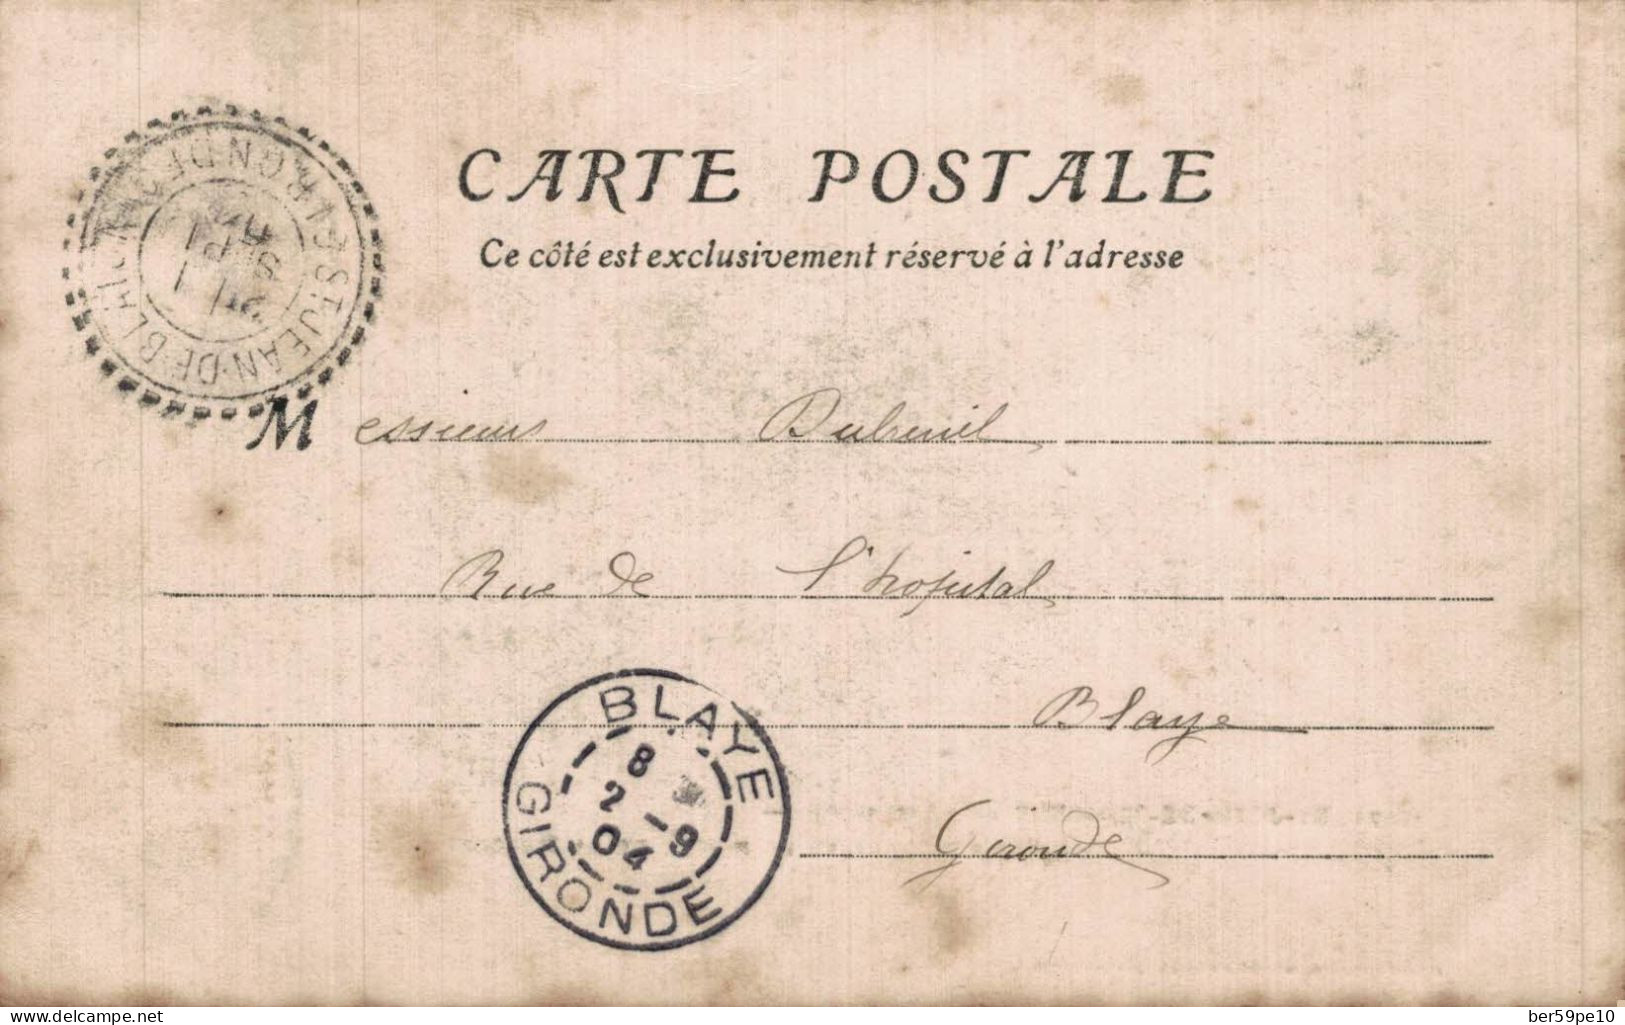 CARTE POSTALE
Ce côté est exclusivement réservé à l'adresse
ST JEAN-DE-BLAIGNAC
GIRONDE
M essieurs Dubreuil
Rue de l'hopital
Blaye
Gironde
BLAYE
8
2 -9
04
GIRONDE
delcampe.net
ber59pe10